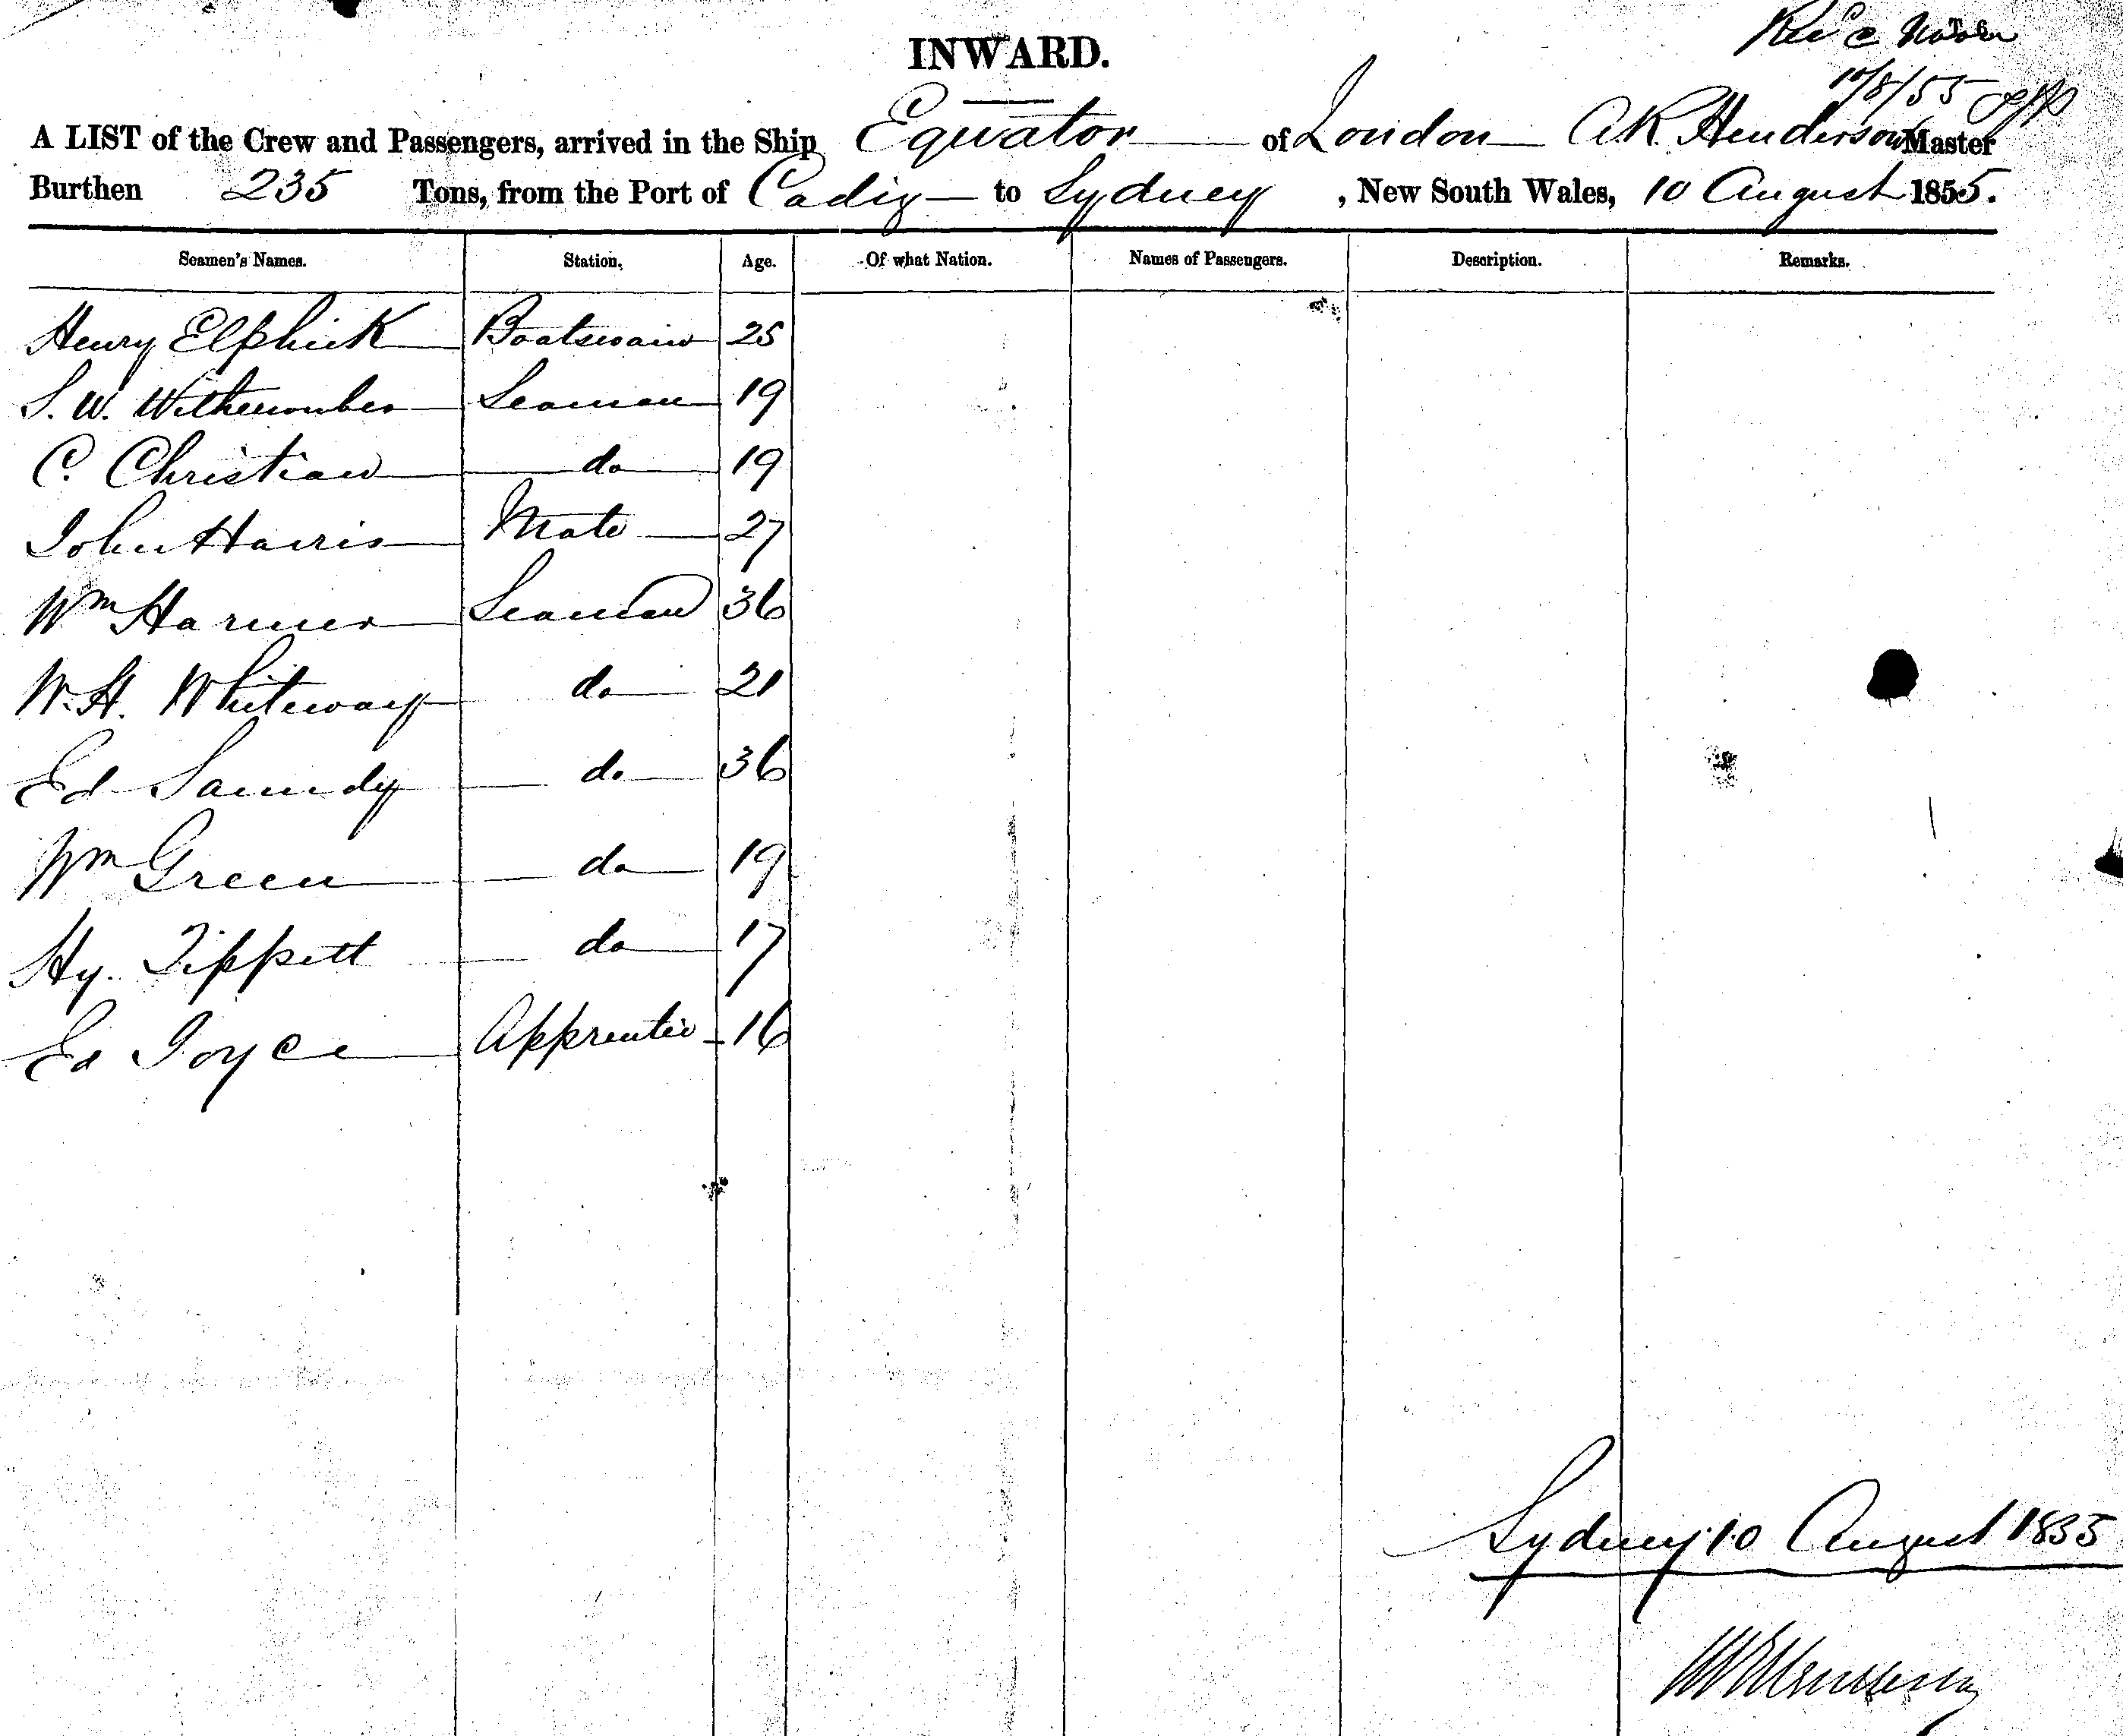 10/8/55
INWARD.
A LIST of the Crew and Passengers, arrived in the Ship Equator of London A K Henderson Master
Burthen 235 Tons, from the Port of Cadiz to Sydney, New South Wales, 10 August 1855.
Seamen's Names. Station. Age. Of what Nation. Names of Passengers. Description. Remarks.
Henry Elphick Boatswain 25
S. W. Seaman 19
C. Christian do 19
John Harris Mate 27
Wm Harmer Seaman 36
W. H. Whiteway do 21
Ed do 36
Wm Green do 19
Hy. Tippett do 17
Ed Joyce Apprentic 16
Sydney 10 August 1855